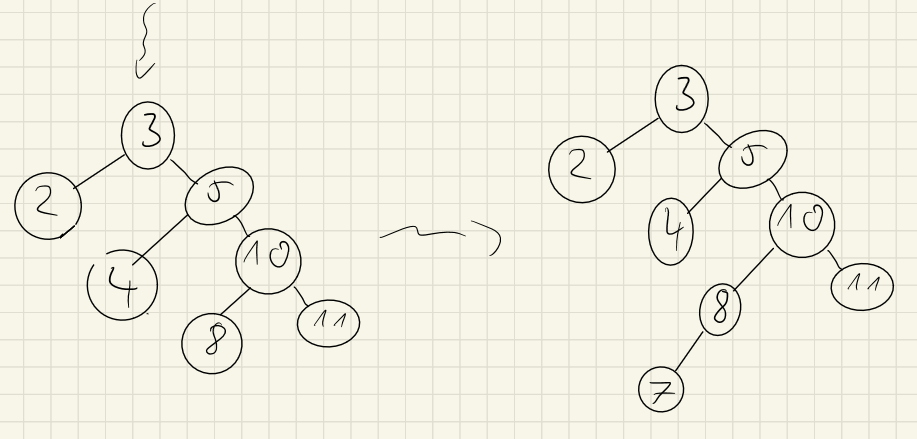 3
2
5
4
10
8
11
3
2
5
4
10
8
11
7